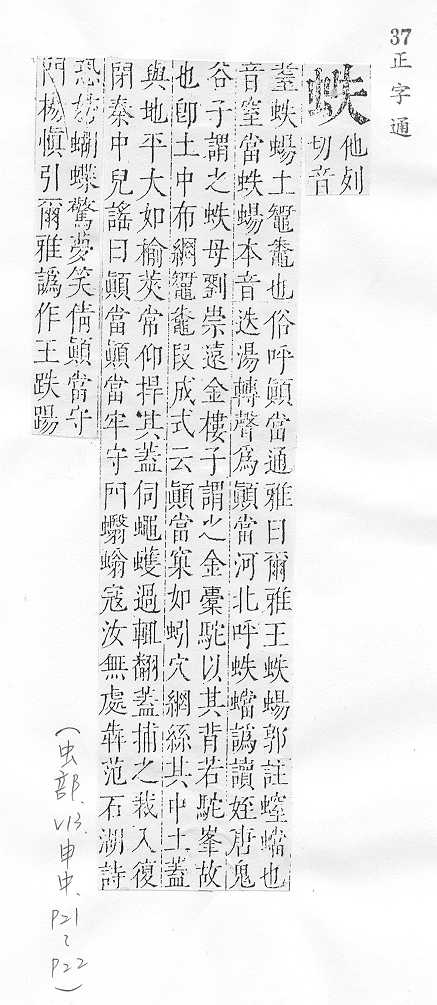 37 正字通
蛈 他列
切音
蛈蝪土鼅鼄也俗呼顚當通雅曰爾雅王蛈蝪郭註螲蟷也
音窒當蛈蝪本音迭湯轉聲爲顚當河北呼蛈蟷譌讀姪唐鬼
谷子謂之蛈母劉崇遠金樓子謂之金橐駝以其背若駝峯故
也卽土中布網鼅鼄段成式云顚當窠如蚓穴網絲其中土蓋
與地平大如楡莢常仰捍其蓋伺蠅蠖過輒翻蓋捕之裁入復
閉秦中兒謠曰顚當顚當牢守門蠮螉寇汝無處犇范石湖詩
恐妨蝴蝶驚夢笑倩顚當守
門楊愼引爾雅譌作王跌踼
(虫部、V13.申中、P21~P22)